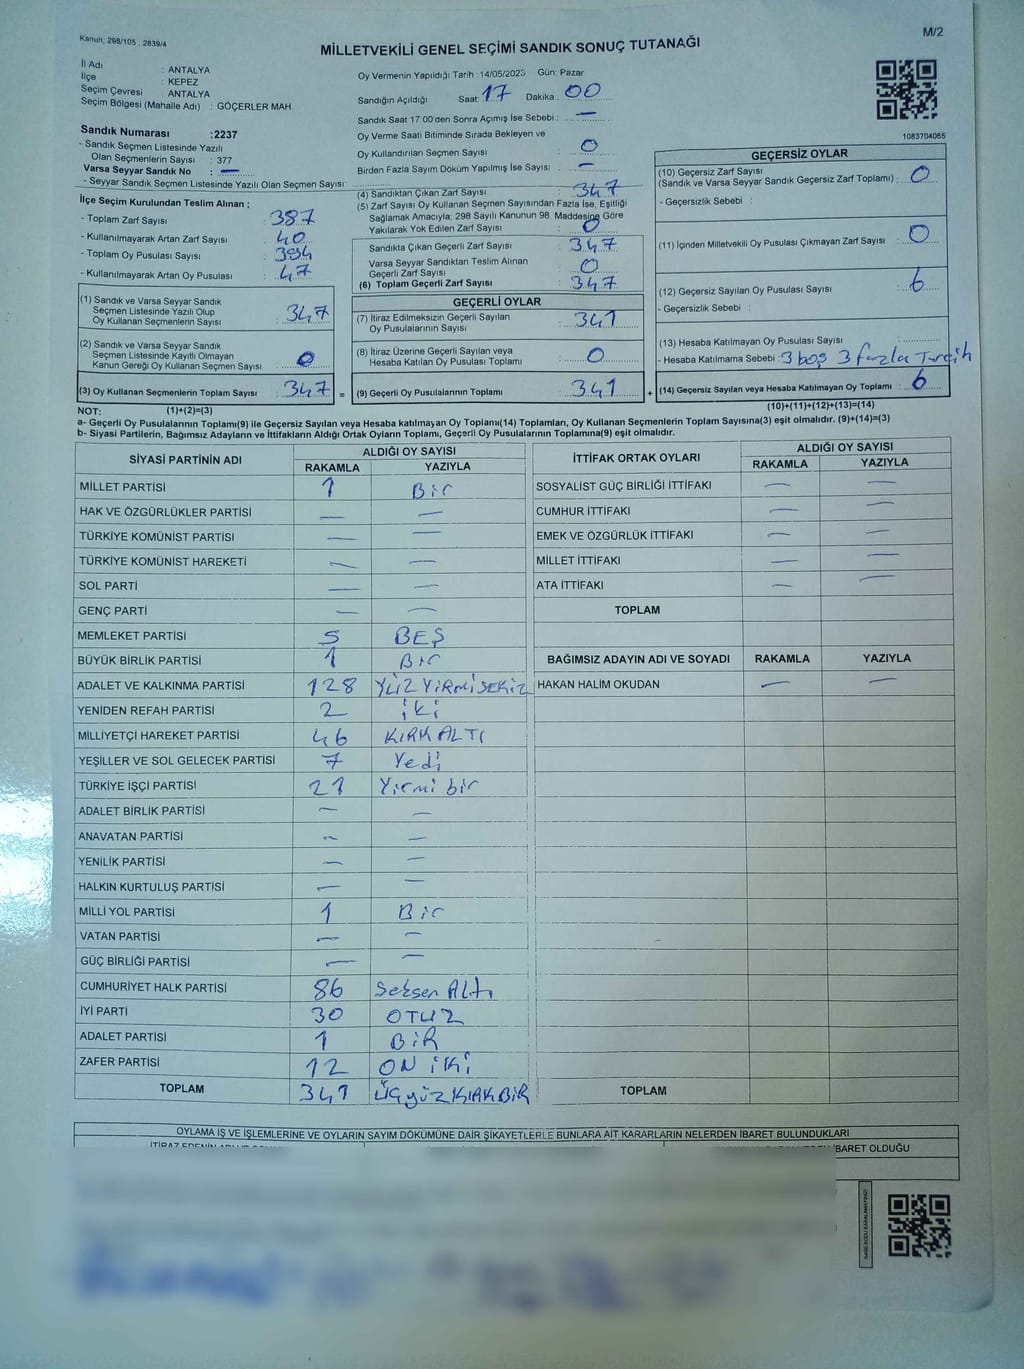 Kanun: 298/105 , 2839/4
M/2
MİLLETVEKİLİ GENEL SEÇİMİ SANDIK SONUÇ TUTANAĞI
İl Adı : ANTALYA
İlçe : KEPEZ
Seçim Çevresi : ANTALYA
Seçim Bölgesi (Mahalle Adı) : GÖÇERLER MAH.
Sandık Numarası :2237
- Sandık Seçmen Listesinde Yazılı
Olan Seçmenlerin Sayısı : 377
Varsa Seyyar Sandık No : —
- Seyyar Sandık Seçmen Listesinde Yazılı Olan Seçmen Sayısı:
İlçe Seçim Kurulundan Teslim Alınan :
- Toplam Zarf Sayısı : 387
- Kullanılmayarak Artan Zarf Sayısı : 40
- Toplam Oy Pusulası Sayısı : 394
- Kullanılmayarak Artan Oy Pusulası : 47
(1) Sandık ve Varsa Seyyar Sandık
Seçmen Listesinde Yazılı Olup
Oy Kullanan Seçmenlerin Sayısı : 347
(2) Sandık ve Varsa Seyyar Sandık
Seçmen Listesinde Kayıtlı Olmayan
Kanun Gereği Oy Kullanan Seçmen Sayısı : 0
(3) Oy Kullanan Seçmenlerin Toplam Sayısı : 347 =
Oy Vermenin Yapıldığı Tarih :14/05/2023 Gün: Pazar
Sandığın Açıldığı Saat: 17 Dakika: 00
Sandık Saat 17:00'den Sonra Açımış İse Sebebi : —
Oy Verme Saati Bitiminde Sırada Bekleyen ve
Oy Kullandırılan Seçmen Sayısı : 0
Birden Fazla Sayım Döküm Yapılmış İse Sayısı : —
(4) Sandıktan Çıkan Zarf Sayısı : 347
(5) Zarf Sayısı Oy Kullanan Seçmen Sayısından Fazla İse, Eşitliği
Sağlamak Amacıyla, 298 Sayılı Kanunun 98. Maddesine Göre
Yakılarak Yok Edilen Zarf Sayısı : 0
Sandıkta Çıkan Geçerli Zarf Sayısı : 347
Varsa Seyyar Sandıktan Teslim Alınan
Geçerli Zarf Sayısı : 0
(6) Toplam Geçerli Zarf Sayısı : 347
GEÇERLİ OYLAR
(7) İtiraz Edilmeksizin Geçerli Sayılan
Oy Pusulalarının Sayısı : 341
(8) İtiraz Üzerine Geçerli Sayılan veya
Hesaba Katılan Oy Pusulası Toplamı : 0
(9) Geçerli Oy Pusulalarının Toplamı : 341 +
1083704065
GEÇERSİZ OYLAR
(10) Geçersiz Zarf Sayısı
(Sandık ve Varsa Seyyar Sandık Geçersiz Zarf Toplamı) : 0
- Geçersizlik Sebebi :
(11) İçinden Milletvekili Oy Pusulası Çıkmayan Zarf Sayısı : 0
(12) Geçersiz Sayılan Oy Pusulası Sayısı : 6
- Geçersizlik Sebebi :
(13) Hesaba Katılmayan Oy Pusulası Sayısı :
- Hesaba Katılmama Sebebi : 3 boş 3 fazla Tercih
(14) Geçersiz Sayılan veya Hesaba Katılmayan Oy Toplamı : 6
NOT: (1)+(2)=(3)
(10)+(11)+(12)+(13)=(14)
a- Geçerli Oy Pusulalarının Toplamı(9) ile Geçersiz Sayılan veya Hesaba katılmayan Oy Toplamı(14) Toplamları, Oy Kullanan Seçmenlerin Toplam Sayısına(3) eşit olmalıdır. (9)+(14)=(3)
b- Siyasi Partilerin, Bağımsız Adayların ve İttifakların Aldığı Ortak Oyların Toplamı, Geçerli Oy Pusulalarının Toplamına(9) eşit olmalıdır.
SİYASİ PARTİNİN ADI ALDIĞI OY SAYISI
RAKAMLA YAZIYLA
MİLLET PARTİSİ 1 Bir
HAK VE ÖZGÜRLÜKLER PARTİSİ — —
TÜRKİYE KOMÜNİST PARTİSİ — —
TÜRKİYE KOMÜNİST HAREKETİ — —
SOL PARTİ — —
GENÇ PARTİ — —
MEMLEKET PARTİSİ 5 BEŞ
BÜYÜK BİRLİK PARTİSİ 1 Bir
ADALET VE KALKINMA PARTİSİ 128 YÜZ YİRMİSEKİZ
YENİDEN REFAH PARTİSİ 2 iki
MİLLİYETÇİ HAREKET PARTİSİ 46 KIRK ALTI
YEŞİLLER VE SOL GELECEK PARTİSİ 7 Yedi
TÜRKİYE İŞÇİ PARTİSİ 21 Yirmi bir
ADALET BİRLİK PARTİSİ — —
ANAVATAN PARTİSİ — —
YENİLİK PARTİSİ — —
HALKIN KURTULUŞ PARTİSİ — —
MİLLİ YOL PARTİSİ 1 Bir
VATAN PARTİSİ — —
GÜÇ BİRLİĞİ PARTİSİ — —
CUMHURİYET HALK PARTİSİ 86 Seksen Altı
İYİ PARTİ 30 OTUZ
ADALET PARTİSİ 1 BİR
ZAFER PARTİSİ 12 ON iKi
TOPLAM 341 ÜÇyüz KIRK BİR
İTTİFAK ORTAK OYLARI ALDIĞI OY SAYISI
RAKAMLA YAZIYLA
SOSYALİST GÜÇ BİRLİĞİ İTTİFAKI — —
CUMHUR İTTİFAKI — —
EMEK VE ÖZGÜRLÜK İTTİFAKI — —
MİLLET İTTİFAKI — —
ATA İTTİFAKI — —
TOPLAM
BAĞIMSIZ ADAYIN ADI VE SOYADI RAKAMLA YAZIYLA
HAKAN HALİM OKUDAN — —
TOPLAM
OYLAMA İŞ VE İŞLEMLERİNE VE OYLARIN SAYIM DÖKÜMÜNE DAİR ŞİKAYETLERLE BUNLARA AİT KARARLARIN NELERDEN İBARET BULUNDUKLARI
İTİRAZ EDENİN
İBARET OLDUĞU